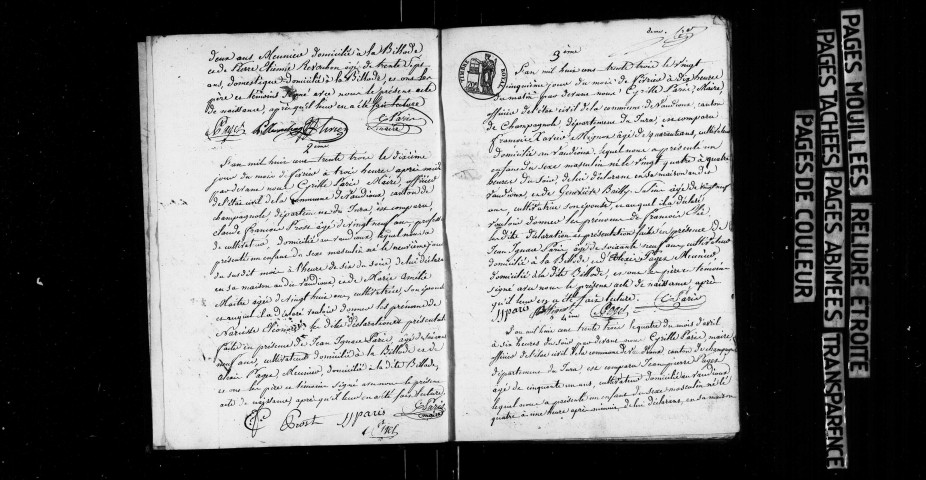 deux ans Meunier domicilié à la Billode
et de Pierre Etienne âgé de trente sept
ans, domestique domicilié à la Billode, et ont les
père et témoins signé avec nous le présent acte
de naissance, après qu'il leur en a été fait lecture
C Paris
maire
2ème
L'an mil huit cent trente trois le dixième
jour du mois de février à trois heure après midi
par devant nous Cyrille Paris Maire, officier
de l'état civil de la Commune de Vaudioux, canton de
champagnole, département du Jura, est comparu,
claude François Prost âgé de vingt neuf ans profession
de cultivateur domicilié au vaudioux, lequel nous a
présenté un enfant du sexe masculin né le neuvième jour
du susdit mois à l'heure de six du soir, de lui déclarant
en sa maison au dit vaudioux et de Marie Amélie
Maitre âgée de vingt huit ans, cultivatrice, son épouse
et auquel il a déclaré vouloir donner les prénoms de
Narcisse les dites déclaration et présentation
faite en présence de Jean Ignace Paris, âgé de soixante
neuf ans, cultivateur domicilié à la Billode et de
Alexis Paget Meunier domicilié à la dite Billode,
et ont les père et témoins signé avec nous le présent
acte de naissance, après qu'il leur en a été fait lecture.
Prost JJ paris C Paris
maire
Paget
3ème
L'an mil huit cent trente trois le vingt
cinquième jour du mois de Février à dix heures
du matin par devant nous Cyrille Paris, Maire,
officier de l'état civil de la commune de Vaudioux, canton
de Champagnole département du Jura, est comparu
françois Xavier Mignot âgé de quarante ans, cultivateur
domicilié au vaudioux lequel nous a présenté un
enfant du sexe masculin né le vingt quatre à quatre
heures du soir, de lui déclarant en sa maison au dit
Vaudioux, et de Bailly âgée de vingt neuf
ans, cultivatrice son épouse, et auquel il a déclaré
vouloir donner les prénoms de francois
les dite déclaration et présentation faite en présence de
Jean Ignace Paris, âgé de soixante neuf ans cultivateur
domicilié à la Billode et Alexis Paget Meunier
domicilié à la dite Billode, et ont les père et témoins
signé avec nous le présent acte de naissance, après
qu'il leur en a été fait lecture. C Paris
JJ paris Paget
4ème
L'an mil huit cent trente trois le quatre du mois d'avril
à six heures du soir par devant nous Cyrille Paris, maire,
officier de l'état civil de la commune de Vaudioux canton de champagnole
département du Jura est comparu Jean pierre Paget
âgé de cinquante un ans, cultivateur domicilié au vaudioux
lequel nous a présenté un enfant du sexe masculin né le
quatre à une heure après minuit, de lui déclarant, en sa maison
PAGES MOUILLEES RELIURE ETROITE
PAGES TACHEES PAGES ABIMEES TRANSPARENCE
PAGES DE COULEUR